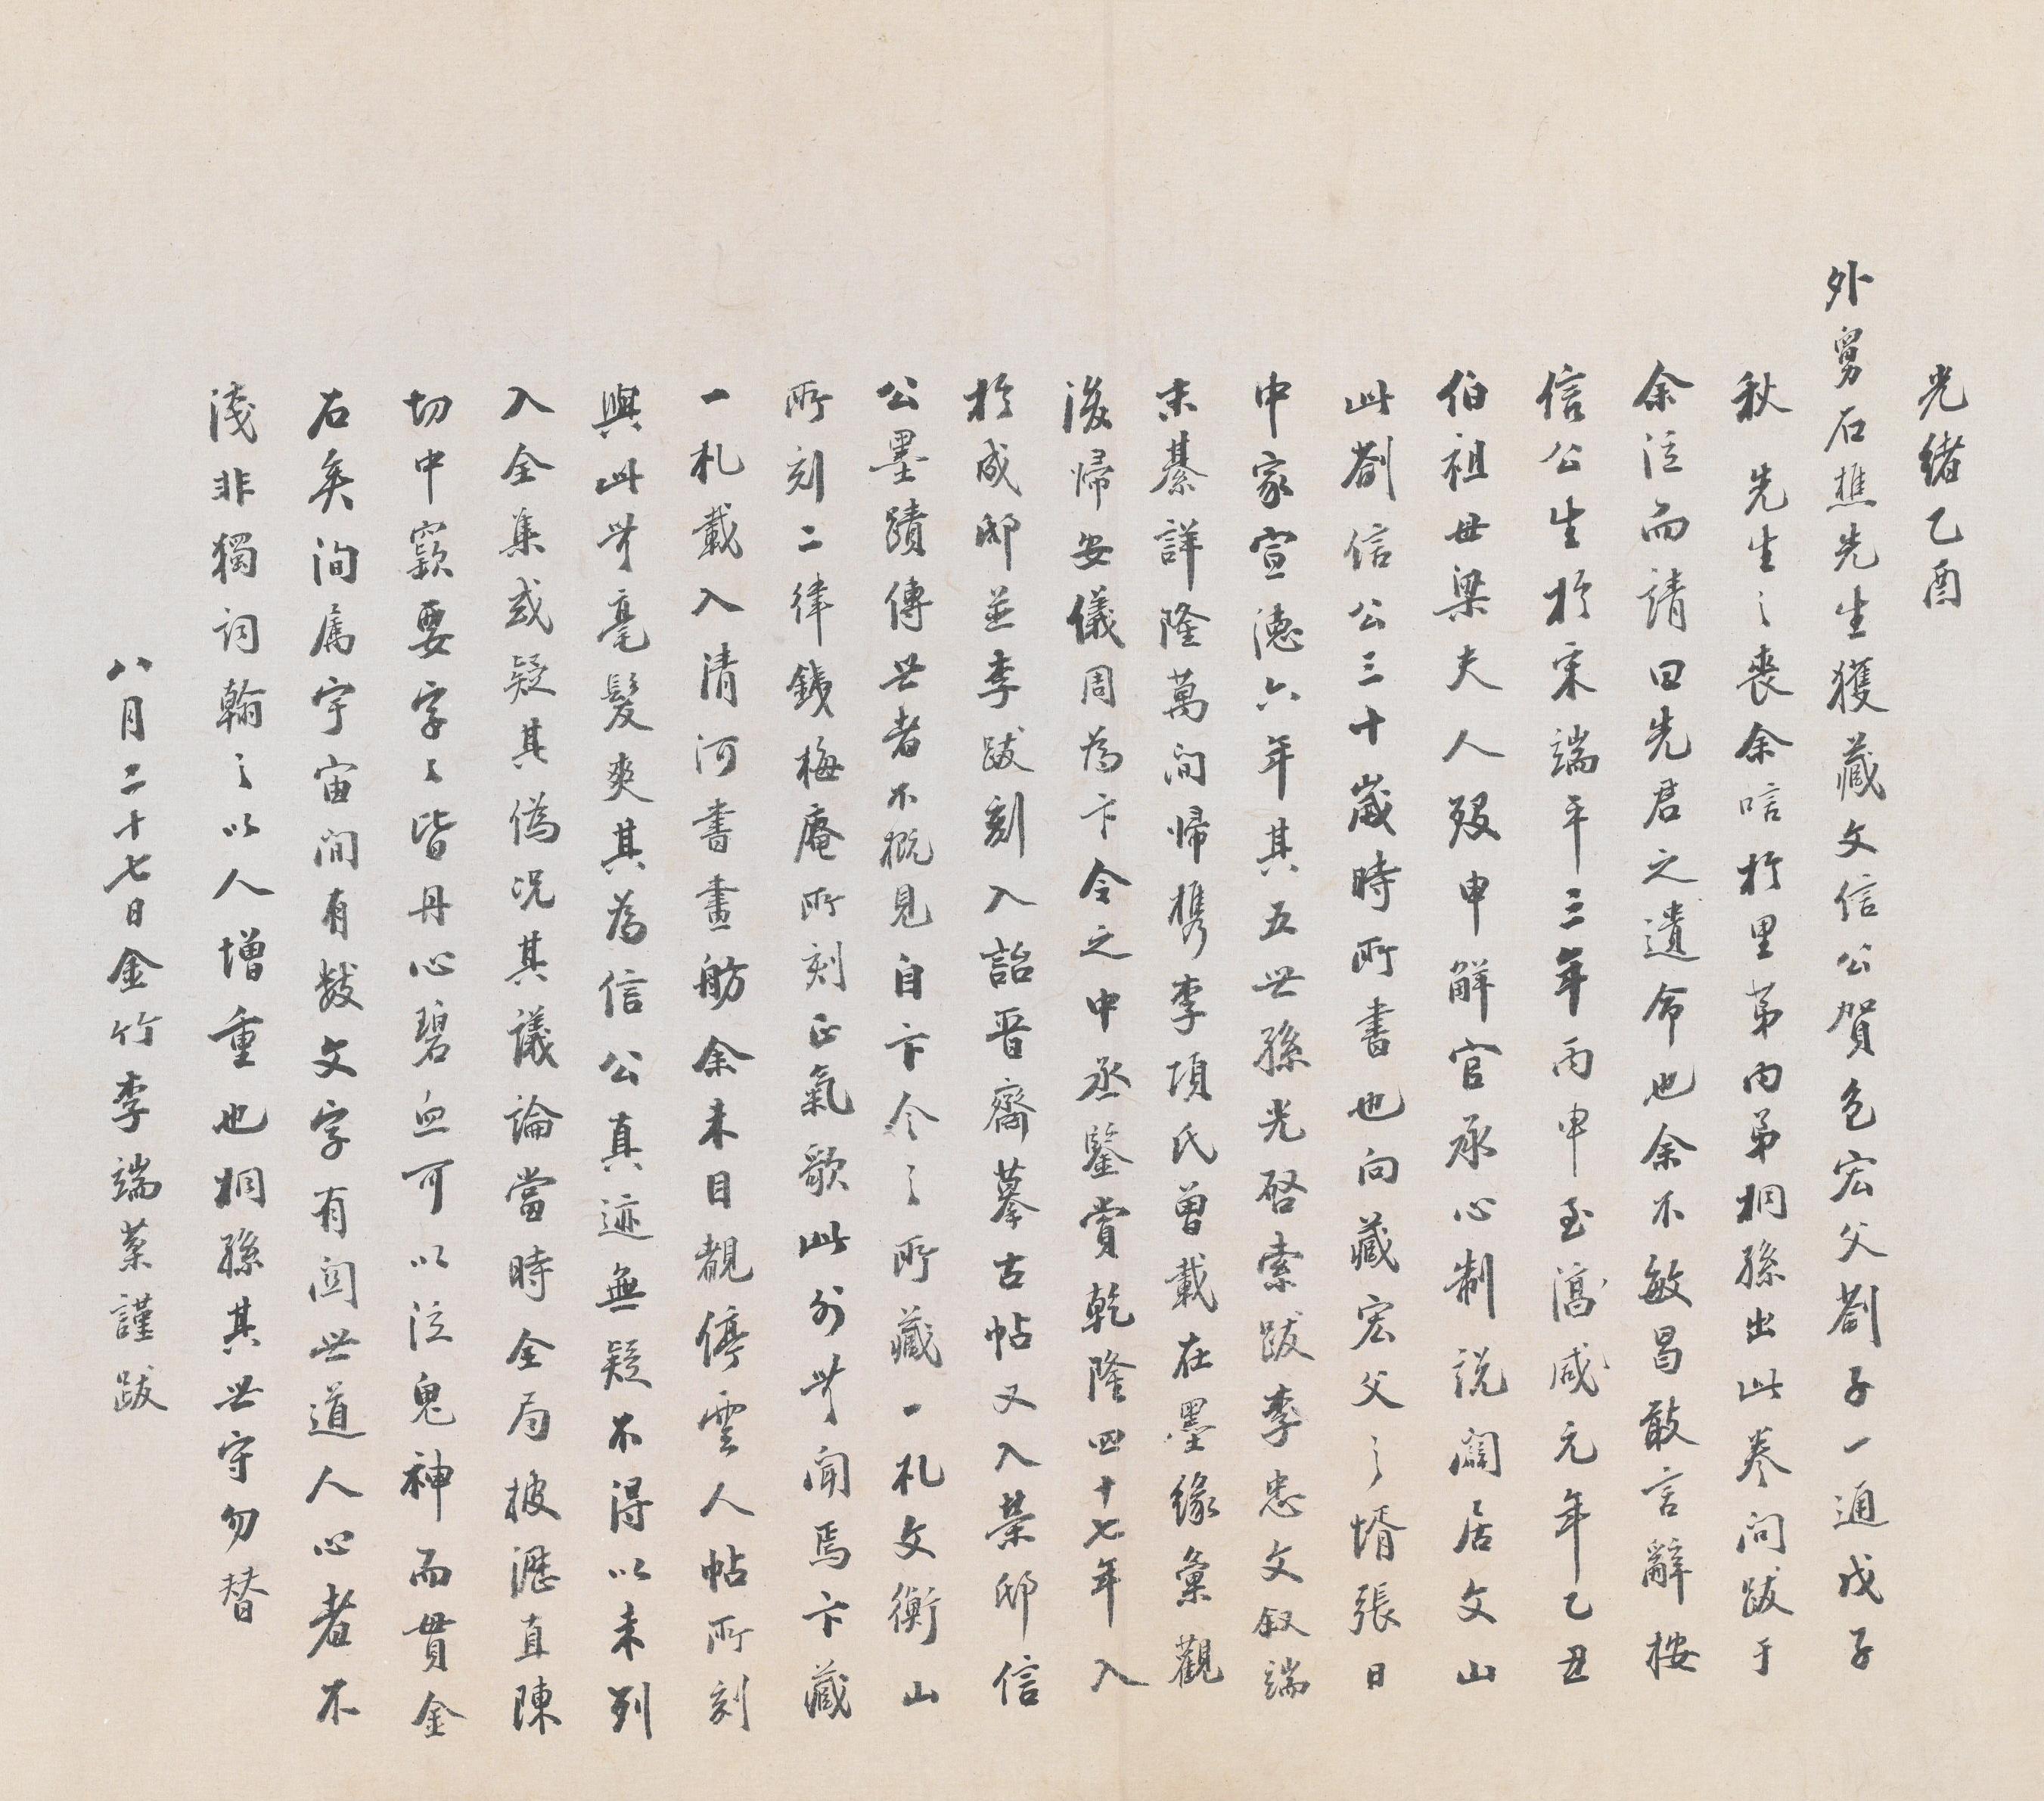 光緒乙酉
外舅石樵先生獲藏文信公賀包宏父劄子一通戊子
秋 先生之喪余唁於里第內弟桐孫出此卷問跋于
余泣而請曰先君之遺命也余不敏曷敢言辭按
信公生於宋端平三年丙申至咸元年乙丑
伯祖母梁夫人歿申解官承心制說闢居文山
此劄信公三十歲時所書也向藏宏父之壻張日
中家宣德六年其五世孫光啓索跋李忠文叙端
末綦詳隆萬間歸檇李項氏曾載在墨緣彙觀
後歸安儀周為卞令之中丞鑒賞乾隆四十七年入
於成邸並李跋刻入詒晉齋摹古帖又入榮邸信
公墨蹟傳世者不概見自卞令之所藏一札文衡山
所刻二律錢梅庵所刻正氣歌此外無聞焉卞藏
一札載入清河書畫舫余未目覩停雲人帖所刻
與此無毫髮爽其為信公真迹無疑不得以未列
入全集或疑其偽況其議論當時全局披瀝直陳
切中窾要字字皆丹心碧血可以泣鬼神而貫金
石矣洵屬宇宙間有數文字有関世道人心者不
淺非獨詞翰之以人增重也桐孫其世守勿替
八月二十七日金竹李端棻謹跋